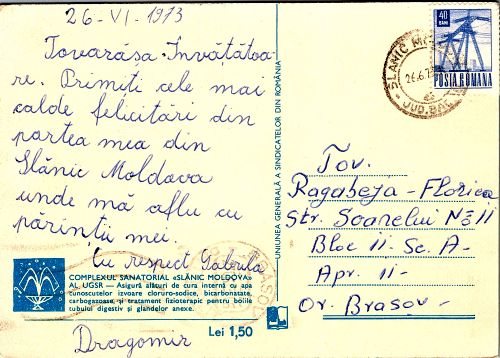 26-VI-1973
Tovarăsa Învățătoa
re. Primiți cele mai
calde felicitări din
partea mea din
Slănic Moldova
unde mă aflu cu
părinții mei.
Cu respect Gabriela
Dragomir
COMPLEXUL SANATORIAL «SLĂNIC MOLDOVA»
AL UGSR — Asigură alături de cura internă cu apa
cunoscutelor izvoare cloruro-sodice, bicarbonatate,
carbogazoase, și tratament fizioterapic pentru bolile
tubului digestiv și glandelor anexe.
Lei 1,50
UNIUNEA GENERALĂ A SINDICATELOR DIN ROMÂNIA
40
BANI
POSTA ROMANA
SLANIC
26.6.73
JUD. BAC
Tov.
Ragabeja - Florica
Str. Soarelui Nº 11
Bloc 11 - Sc. A -
Apr. 11 -
Or. Brasov -